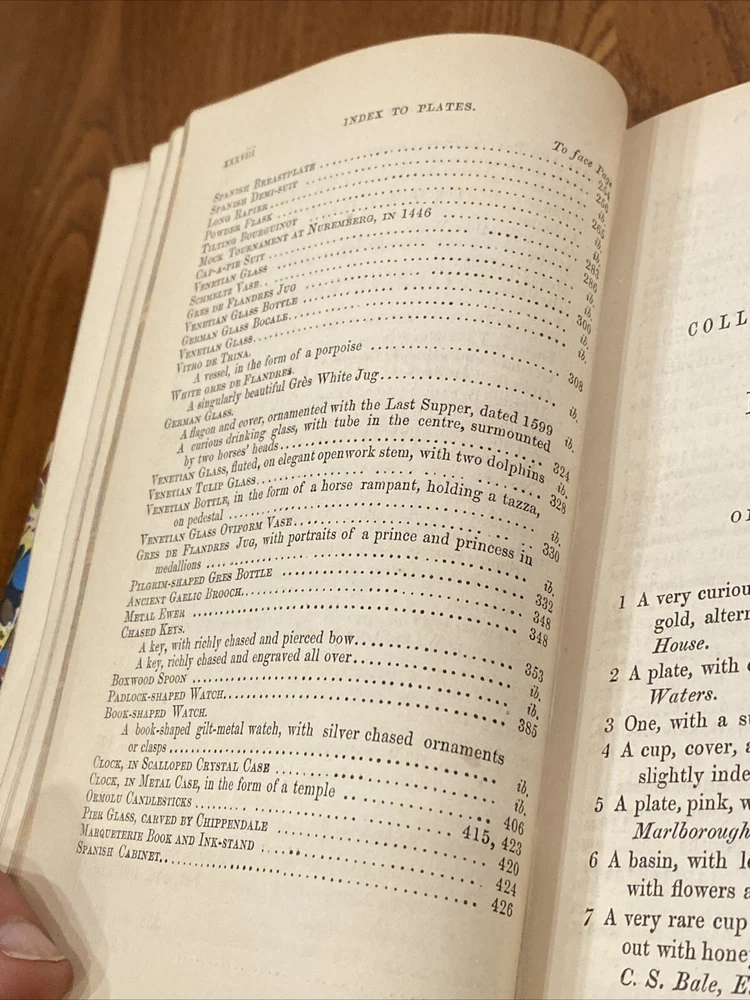 xxxviii
INDEX TO PLATES.
To face Page
SPANISH BREASTPLATE 254
SPANISH DEMI-SUIT
LONG RAPIER ib.
POWDER FLASK 265
TILTING BOURGUINOT ib.
MOCK TOURNAMENT AT NUREMBERG, IN 1446 ib.
CAP-A-PIE SUIT 283
VENETIAN GLASS 286
SCHMELTZ VASE ib.
GRES DE FLANDRES JUG ib.
VENETIAN GLASS BOTTLE 300
GERMAN GLASS BOCALE ib.
VENETIAN GLASS ib.
VITRO DE TRINA.
A vessel, in the form of a porpoise 308
WHITE GRES DE FLANDRES.
A singularly beautiful Grès White Jug ib.
GERMAN GLASS.
A flagon and cover, ornamented with the Last Supper, dated 1599 ib.
A curious drinking glass, with tube in the centre, surmounted
by two horses' heads 324
VENETIAN GLASS, fluted, on elegant openwork stem, with two dolphins ib.
VENETIAN TULIP GLASS 328
VENETIAN BOTTLE, in the form of a horse rampant, holding a tazza,
on pedestal ib.
VENETIAN GLASS OVIFORM VASE 330
GRES DE FLANDRES JUG, with portraits of a prince and princess in
medallions ib.
PILGRIM-SHAPED GRES BOTTLE 332
ANCIENT GAELIC BROOCH 348
METAL EWER 348
CHASED KEYS.
A key, with richly chased and pierced bow 353
A key, richly chased and engraved all over ib.
BOXWOOD SPOON ib.
PADLOCK-SHAPED WATCH 385
BOOK-SHAPED WATCH.
A book-shaped gilt-metal watch, with silver chased ornaments
or clasps ib.
CLOCK, IN SCALLOPED CRYSTAL CASE ib.
CLOCK, IN METAL CASE, in the form of a temple 406
ORMOLU CANDLESTICKS 415, 423
PIER GLASS, CARVED BY CHIPPENDALE 420
MARQUETERIE BOOK AND INK-STAND 424
SPANISH CABINET 426
COLL
1 A very curiou
gold, altern
House.
2 A plate, with
Waters.
3 One, with a s
4 A cup, cover,
slightly inde
5 A plate, pink, w
Marlborough
6 A basin, with le
with flowers a
7 A very rare cup
out with hone
C. S. Bale, E